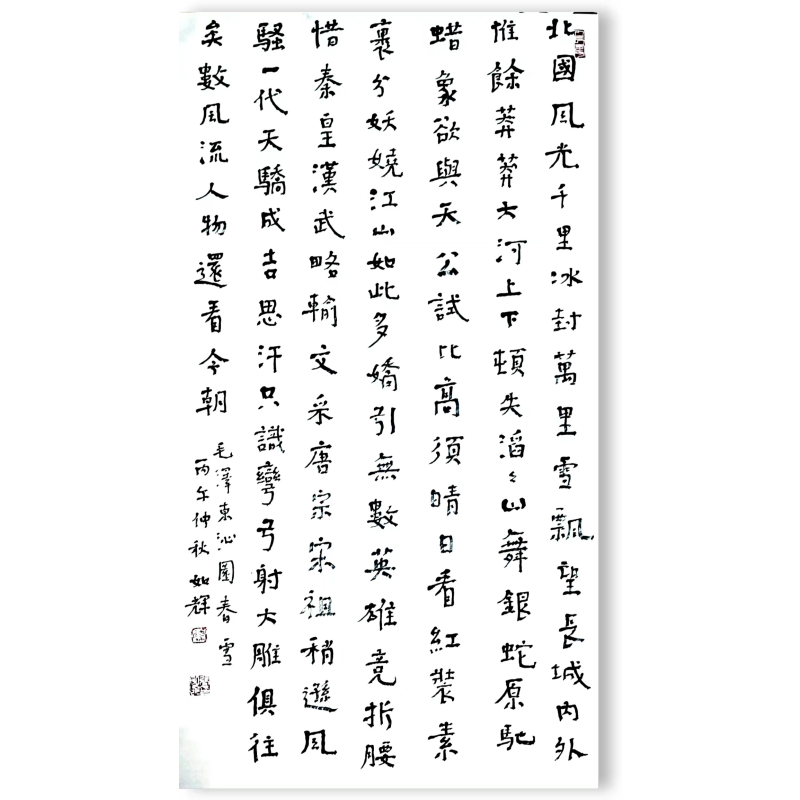 北國風光千里冰封萬里雪飄望長城内外
惟餘莽莽大河上下頓失滔々山舞銀蛇原馳
蜡象欲與天公試比高須晴日看紅裝素
裹分妖嬈江山如此多嬌引無數英雄竞折腰
惜秦皇漢武略輸文采唐宗宋祖稍遜風
騷一代天驕成吉思汗只識彎弓射大雕俱往
矣數風流人物還看今朝
毛澤東沁園春雪
丙午仲秋如輝